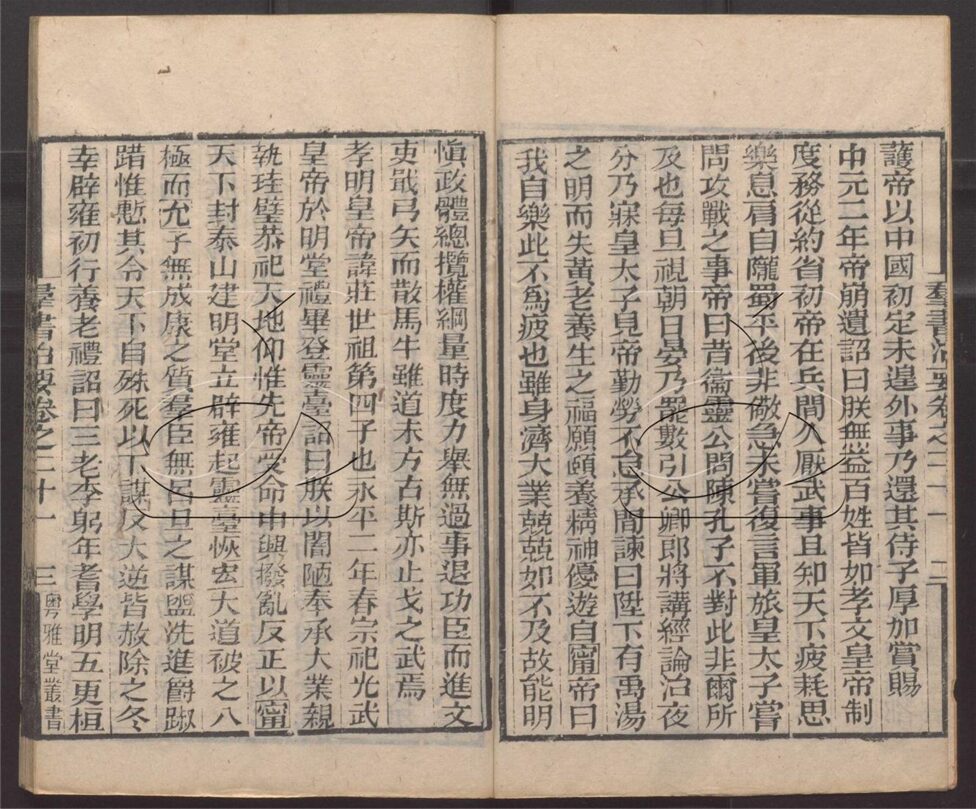 羣書治要卷之二十一 二
護帝以中國初定未遑外事乃還其侍子厚加賞賜
中元二年帝崩遺詔曰朕無益百姓皆如孝文皇帝制
度務從約省初帝在兵間久厭武事且知天下疲耗思
樂息肩自隴蜀平後非儆急未嘗復言軍旅皇太子嘗
問攻戰之事帝曰昔衞靈公問陳孔子不對此非爾所
及也每旦視朝日晏乃罷數引公卿郎將講經論治夜
分乃寐皇太子見帝勤勞不怠承間諫曰陛下有禹湯
之明而失黃老養生之福願頤養精神優遊自寗帝曰
我自樂此不爲疲也雖身濟大業兢兢如不及故能明
愼政體總攬權綱量時度力舉無過事退功臣而進文
吏戢弓矢而散馬牛雖道未方古斯亦止戈之武焉
孝明皇帝諱莊世祖第四子也永平二年春宗祀光武
皇帝於明堂禮畢登靈臺詔曰朕以闇陋奉承大業親
執珪璧恭祀天地仰惟先帝受命中興撥亂反正以寗
天下封泰山建明堂立辟雍起靈臺恢宏大道被之八
極而允子無成康之質羣臣無呂旦之謀盥洗進爵踧
踖惟慙其令天下自殊死以下謀反大逆皆赦除之冬
幸辟雍初行養老禮詔曰三老李躬年耆學明五更桓
羣書治要卷之二十一 三 粵雅堂叢書